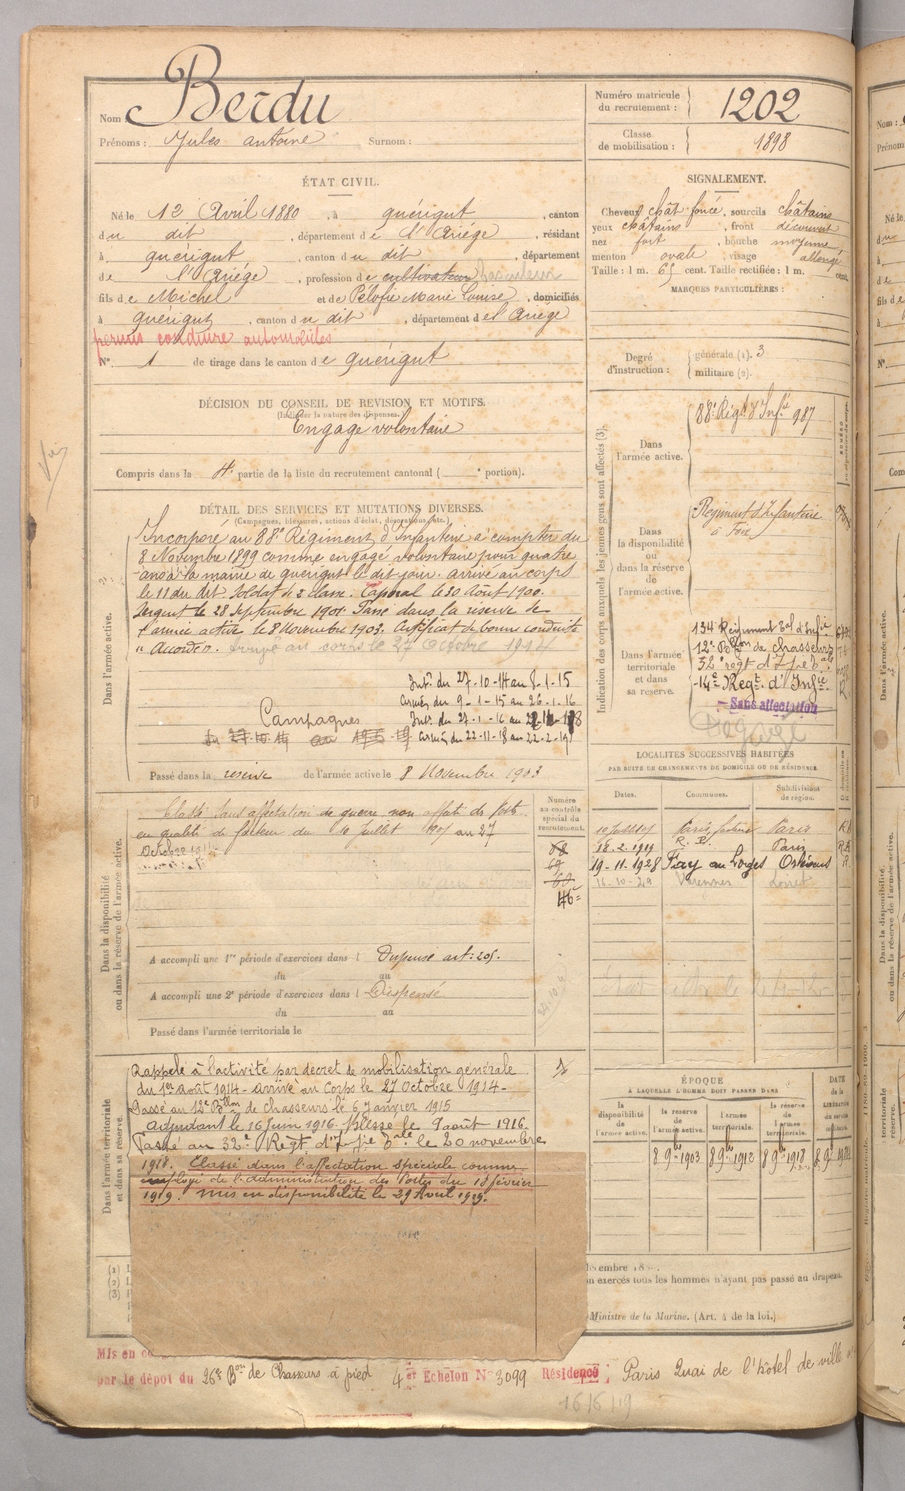 Nom Berdu
Prénoms : Jules antoine Surnom :
Numéro matricule du recrutement : 1202
Classe de mobilisation : 1898
ÉTAT CIVIL.
Né le 12 Avril 1880, à quérigut, canton
du dit, département de l'Ariège, résidant
à quérigut, canton du dit, département
de l'Ariège, profession de cultivateur
fils de Michel et de Pélofie Marie Louise, domiciliés
à quérigut, canton du dit, département de l'Ariège
permis conduire automobiles
N° 1 de tirage dans le canton de quérigut
SIGNALEMENT.
Cheveux chât-foncé, sourcils châtains
yeux châtains, front découvert
nez fort, bouche moyenne
menton ovale, visage allongé
Taille : 1 m. 65 cent. Taille rectifiée : 1 m. cent.
MARQUES PARTICULIÈRES :
Degré d'instruction : générale (1). 3
militaire (2).
DÉCISION DU CONSEIL DE REVISION ET MOTIFS.
(Indiquer la nature des dispenses.)
Engagé volontaire
Compris dans la 4e partie de la liste du recrutement cantonal ( e portion).
DÉTAIL DES SERVICES ET MUTATIONS DIVERSES.
(Campagnes, blessures, actions d'éclat, décorations, etc.)
Dans l'armée active.
Incorporé au 88e Régiment d'Infanterie à compter du
8 Novembre 1899 comme engagé volontaire pour quatre
ans à la mairie de quérigut le dit jour. arrivé au corps
le 11 du dit. Soldat de 2 classe. Caporal le 20 Aout 1900.
Sergent le 28 Septembre 1901 Passé dans la réserve de
l'armée active le 8 Novembre 1903. Certificat de bonne conduite
"Accordé". arrivé au corps le 27 Octobre 1914
Intr. du 27-10-14 au 8-1-15
Armées du 9-1-15 au 26-1-16
Campagnes Intr. du 27-1-16 au
Armées du 22-11-18 au 22-2-19
Passé dans la réserve de l'armée active le 8 Novembre 1903
Indication des corps auxquels les jeunes gens sont affectés (3).
Dans l'armée active. 88e Régt d'Infie 987
Dans la disponibilité ou dans la réserve de l'armée active. Régiment d'Infanterie
à Foix
Dans l'armée territoriale et dans sa réserve. 134 Régiment Tal d'Infie
12e Bton de chasseurs
32e regt d'Infie
14e Régt. d'Infie
Sans affectation
Dégagé
LOCALITÉS SUCCESSIVES HABITÉES
PAR SUITE DE CHANGEMENTS DE DOMICILE OU DE RÉSIDENCE.
Dates. Communes. Subdivisions de région.
Paris Paris
18.2.1919 R. P. Paris
19-11-1928 Fay au Loges Orléans R
16-10-29 Varennes Loiret
Dans la disponibilité ou dans la réserve de l'armée active.
Numéro au contrôle spécial du recrutement.
Classé Sans affectation de guerre non affecté
en qualité de facteur du 10 juillet au 27
Octobre
46
A accompli une 1re période d'exercices dans l Dispensé art: 205.
du au
A accompli une 2e période d'exercices dans l Dispensé
du au
Passé dans l'armée territoriale le
Dans l'armée territoriale et dans sa réserve.
Rappelé à l'activité par décret de mobilisation générale
du 1er août 1914 - arrivé au Corps le 27 Octobre 1914 -
Passé au 12e Btllon de chasseurs le 6 Janvier 1915
Adjudant le 16 Juin 1916. Blessé le 9 août 1916.
Passé au 32e Régt. d'Infie le 20 novembre
1918. Classé dans l'affectation spéciale comme
employé de l'administration des Postes du 18 février
1919. Mis en disponibilité le 29 Avril 1919.
ÉPOQUE
À LAQUELLE L'HOMME DOIT PASSER DANS
la disponibilité de l'armée active. la réserve de l'armée active. l'armée territoriale. la réserve de l'armée territoriale. DATE de la LIBÉRATION du service
8 9bre 1903 8 9bre 1912 8 9bre 1918
(1)
(2)
(3)
exercés tous les hommes n'ayant pas passé au drapeau.
Ministre de la Marine. (Art. 4 de la loi.)
Mis en
par le dépot du 26e Bon de Chasseurs à pied 4e Echelon N° 3099 Résidence : Paris Quai de l'hôtel de ville
16/6/19